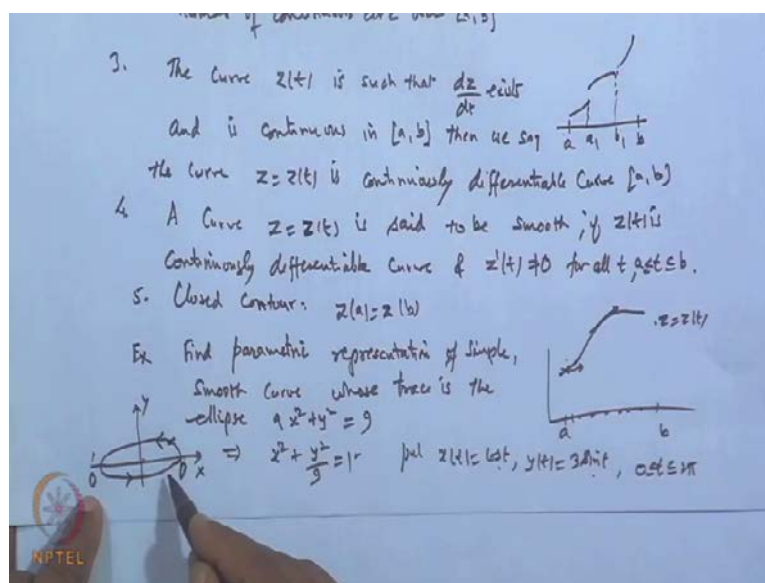 of continuous
3. The curve z(t) is such that dz/dt exists
and is continuous in [a, b] then we say
a a1 b1 b
the curve z = z(t) is continuously differentiable curve [a, b]
4. A curve z = z(t) is said to be smooth, if z(t) is
continuously differentiable curve & z'(t) ≠ 0 for all t, a ≤ t ≤ b.
5. Closed contour: z(a) = z(b)
z = z(t)
Ex Find parametric representation of simple,
smooth curve whose trace is the
ellipse 9x² + y² = 9
a b
y
⇒ x² + y²/9 = 1 put x(t) = cost, y(t) = 3sint, 0 ≤ t ≤ 2π
0 0 x
NPTEL